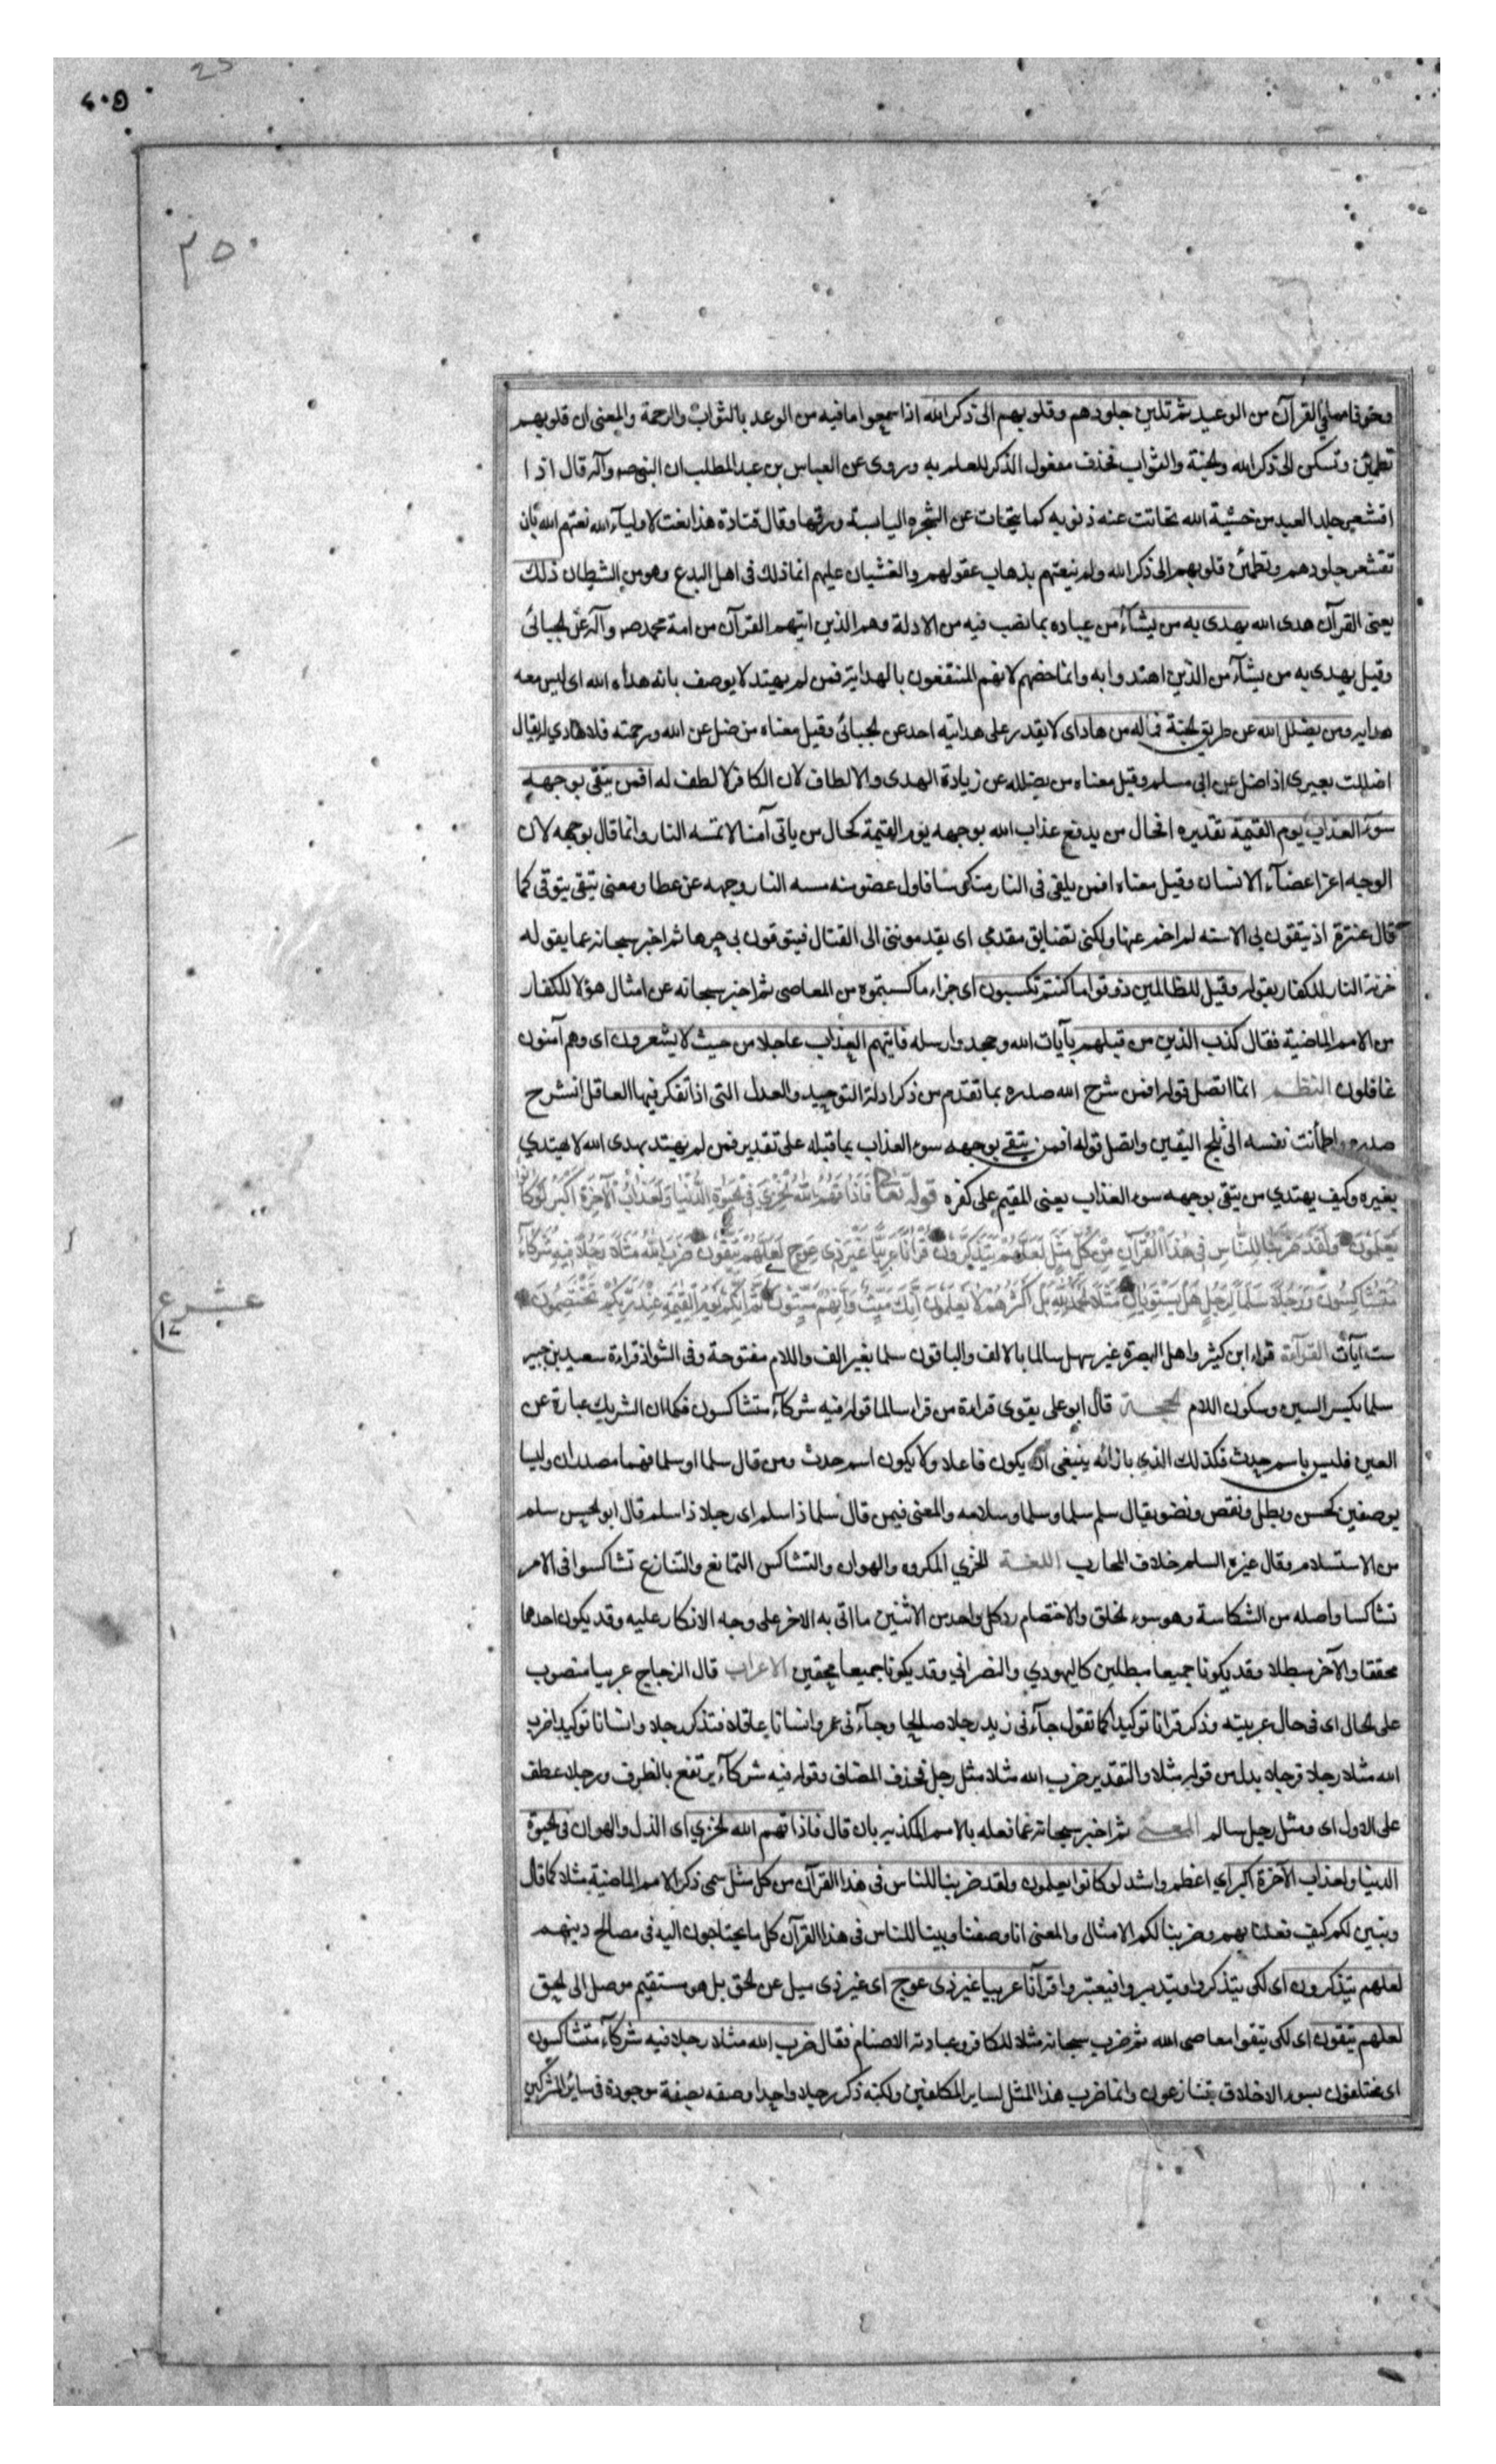 ٤٠٥
٣٥٠
وخوفا مما في القرآن من الوعيد ثم تلين جلودهم وقلوبهم الى ذكر الله اذا سمعوا ما فيه من الوعد بالثواب والرحمة والمعنى ان قلوبهم
تطمئن وتسكن الى ذكر الله ولجنة والثواب فحذف مفعول الذكر للعلم به وروى عن العباس بن عبد المطلب ان النبي صه وآله قال اذا
اقشعر جلد العبد من خشية الله تحاتت عنه ذنوبه كما يتحات عن الشجره اليابسة ورقها وقال قتادة هذا نعت لاوليآء الله نعتهم الله بان
تقشعر جلودهم وتطمئن قلوبهم الى ذكر الله ولم ينعتهم بذهاب عقولهم والغشيان عليهم انما ذلك فى اهل البدع وهو من الشيطان ذلك
يعنى القرآن هدى الله يهدى به من يشآء من عباده بما نصب فيه من الادلة وهم الذين اتيهم القرآن من امة محمد صه وآله عن لجبائى
وقيل يهدى به من يشآء من الذين اهتدوا به وانما خصهم لانهم المنتفعون بالهداية فمن لم يهتد لا يوصف بانه هداه الله اى ليس معه
هدايه ومن يضلل الله عن طريق لجنة فما له من هاد اى لا يقدر على هدايته احد عن لجبائى وقيل معناه من ضل عن الله ورحمته فلا هادي له يقال
اضللت بعيرى اذا ضل عن ابى مسلم وقيل معناه من يضلله عن زيادة الهدى والالطاف لان الكافر لا لطف له افمن يتقى بوجهه
سوء العذاب يوم القيمة تقديره افحال من يدفع عذاب الله بوجهه يوم القيمة كحال من ياتى آمنا لا تمسه النار وانما قال بوجهه لان
الوجه اعز اعضآء الانسان وقيل معناه افمن يلقى فى النار منكوسا فاول عضو منه مسه النار وجهه عن عطا ومعنى يتقى يتوقى كما
قال عنترة اذ يتقون بى الاسنه لم اخم عنها ولكنى تضايق مقدمي اى يقدموننى الى القتال فيتوقون بى حرها ثم اخبر سبحانه عما يقوله
خزنة النار للكفار بقوله وقيل للظالمين ذوقوا ما كنتم تكسبون اى جزاء ما كسبتموه من المعاصى ثم اخبر سبحانه عن امثال هؤلا للكفار
من الامم الماضية فقال كذب الذين من قبلهم بآيات الله وجحدوا رسله فاتيهم العذاب عاجلا من حيث لا يشعرون اى وهم آمنون
غافلون النظم انما اتصل قوله افمن شرح الله صدره بما تقدم من ذكر ادلة التوحيد والعدل التى اذا تفكر فيها العاقل انشرح
صدره واطمانت نفسه الى ثلج اليقين واتصل قوله افمن يتقى بوجهه سوء العذاب بما قبله على تقدير فمن لم يهتد بهدى الله لا يهتدي
بغيره وكيف يهتدي من يتقى بوجهه سوء العذاب يعنى المقيم على كفره قوله تعا فَاَذَاقَهُمُ اللهُ لخِزْيَ فِى لحَيٰوةِ الدُّنْيَا وَلَعَذَابُ الْآخِرَةِ اَكْبَرُ لَوْ كَانُوا
يَعْلَمُونَ وَلَقَدْ ضَرَبْنَا لِلنَّاسِ فِى هٰذَا الْقُرْآنِ مِنْ كُلِّ مَثَلٍ لَعَلَّهُمْ يَتَذَكَّرُونَ قُرْآنًا عَرَبِيًّا غَيْرَ ذِى عِوَجٍ لَعَلَّهُمْ يَتَّقُونَ ضَرَبَ اللهُ مَثَلًا رَجُلًا فِيهِ شُرَكَآءُ
مُتَشَاكِسُونَ وَرَجُلًا سَلَمًا لِرَجُلٍ هَلْ يَسْتَوِيَانِ مَثَلًا لحَمْدُ لِلّٰهِ بَلْ اَكْثَرُهُمْ لَا يَعْلَمُونَ اِنَّكَ مَيِّتٌ وَاِنَّهُمْ مَيِّتُونَ ثُمَّ اِنَّكُمْ يَوْمَ الْقِيٰمَةِ عِنْدَ رَبِّكُمْ تَخْتَصِمُونَ
ست آيات القرآءة قراء ابن كثير واهل البصرة غير سهل سالما بالالف والباقون سلما بغير الف واللام مفتوحة وفى الشواذ قراءة سعيد بن جبير
سلما بكسر السين وسكون اللام لحجة قال ابو على يقوى قراءة من قرا سالما قوله فيه شركآء متشاكسون فكما ان الشريك عبارة عن
العين فليس باسم حدث فكذلك الذي بازائه ينبغى ان يكون فاعلا ولا يكون اسم حدث ومن قال سلما او سلما فهما مصدران وليسا
بوصفين كحسن وبطل ونقص ونضو يقال سلم سلما وسلما وسلامه والمعنى فيمن قال سلما ذا سلم اى رجلا ذا سلم قال ابو لحسن سلم
من الاستسلام وقال غيره السلم خلاف المحارب اللغة الخزي المكروه والهوان والتشاكس التمانع والتنازع تشاكسوا فى الامر
تشاكسا واصله من الشكاسة وهو سوء لخلق والاختصام رد كل واحد من الاثنين ما اتى به الاخر على وجه الانكار عليه وقد يكون احدهما
محققا والآخر مبطلا وقد يكونا جميعا مبطلين كاليهودي والنصراني وقد يكونا جميعا محقين الاعراب قال الزجاج عربيا منصوب
على لحال اى فى حال عربيته وذكر قرانا توكيدا كما تقول جآءنى زيد رجلا صالحا وجآءنى عمرو انسانا عاقلا فتذكر رجلا وانسانا توكيدا ضرب
الله مثلا رجلا فرجلا بدل من قوله مثلا والتقدير ضرب الله مثلا مثل رجل فحذف المضاف وقوله فيه شركآء يرتفع بالظرف ورجلا عطف
على الاول اى ومثل رجل سالم المعنى ثم اخبر سبحانه عما فعله بالامم المكذبه بان قال فاذاقهم الله لخزي اى الذل والهوان فى لحيوة
الدنيا ولعذاب الآخرة اكبر اي اعظم واشد لو كانوا يعلمون ولقد ضربنا للناس فى هذا القرآن من كل مثل سمى ذكر الامم الماضية مثلا كما قال
وتبين لكم كيف فعلنا بهم وضربنا لكم الامثال والمعنى انا وصفنا وبينا للناس فى هذا القرآن كل ما يحتاجون اليه فى مصالح دينهم
لعلهم يتذكرون اى لكى يتذكروا ويتدبروا فيعتبروا قرآنا عربيا غير ذى عوج اى غير ذى ميل عن لحق بل هو مستقيم موصل الى لحق
لعلهم يتقون اى لكى يتقوا معاصى الله ثم ضرب سبحانه مثلا للكافر وعبادته الاصنام فقال ضرب الله مثلا رجلا فيه شركآء متشاكسون
اى مختلفون بسوء الاخلاق يتنازعون وانما ضرب هذا المثل لساير المكلفين ولكنه ذكر رجلا واحدا وصفه بصفة موجودة فى ساير المشركين
عشر ع